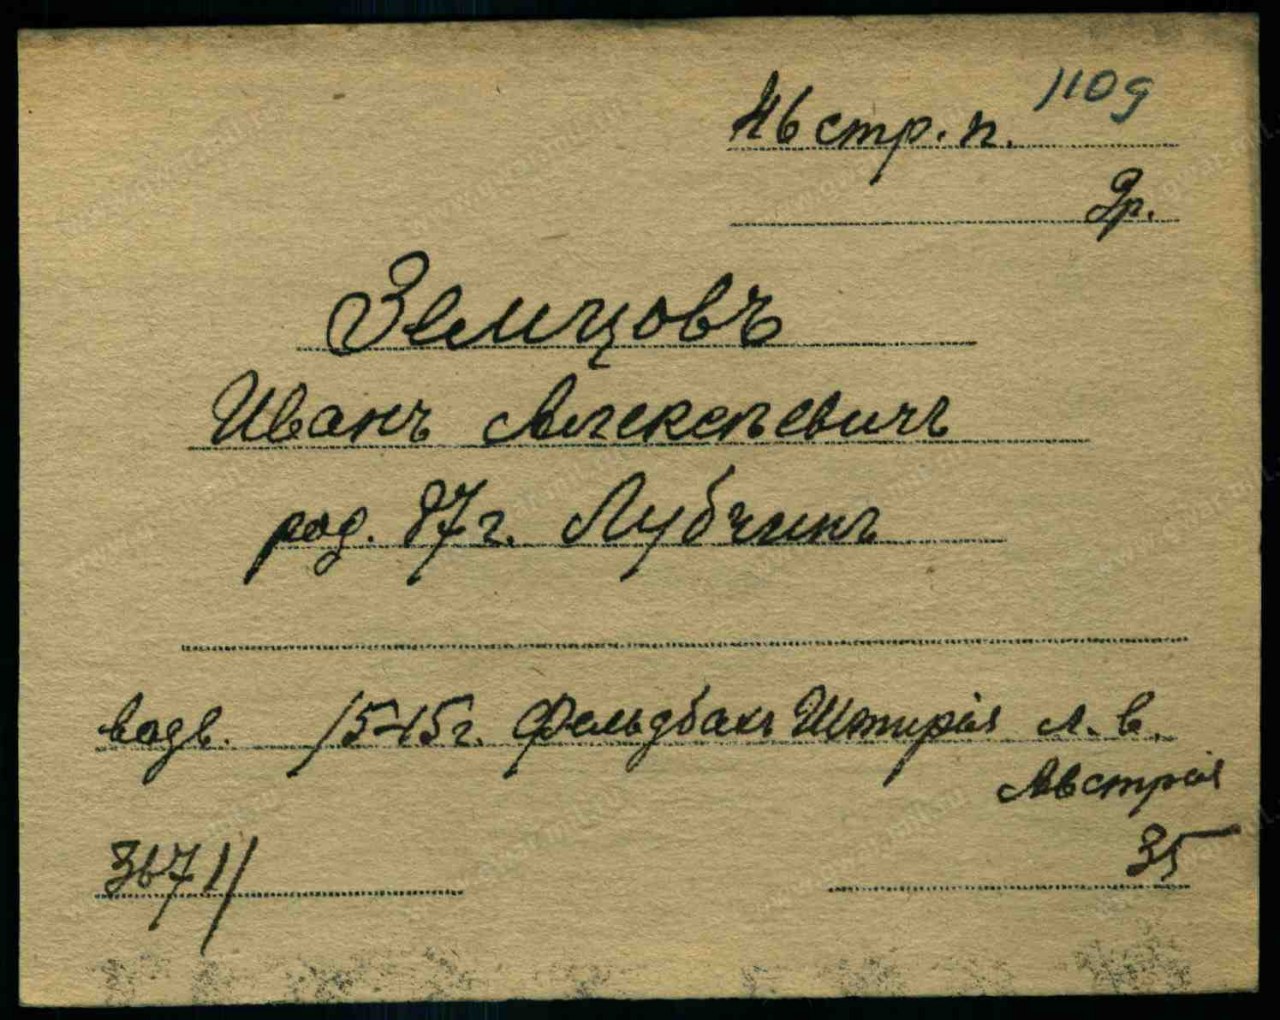 1109
46 стр. п.
Др.
Земцовъ
Иванъ Алексѣевичъ
род. 87 г. Лубчинъ
водв. /5-15 г. Фельдбахъ Штирія л. в.
Австрія
367 1/
35